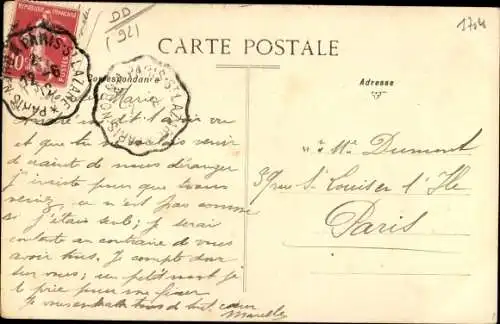 DD
(92)
1704
REPUBLIQUE FRANÇAISE
10
POSTES
PARIS-ST-LAZARE
PARIS-NORD
CARTE POSTALE
Correspondance
Adresse
Marie
dit l'avoir vu
et que tu ne voulais venir
de crainte de nous déranger
J'insiste pour que vous
veniez, ce n'est pas comme
si j'étais seul; je serai
contente au contraire de vous
avoir tous. Je compte donc
sur vous; un petit mot je
te prie pour me fixer
Je vous embrasse tous de tout cœur
Marcelle
Me Dumont
39 rue St Louis en l'Ile
Paris